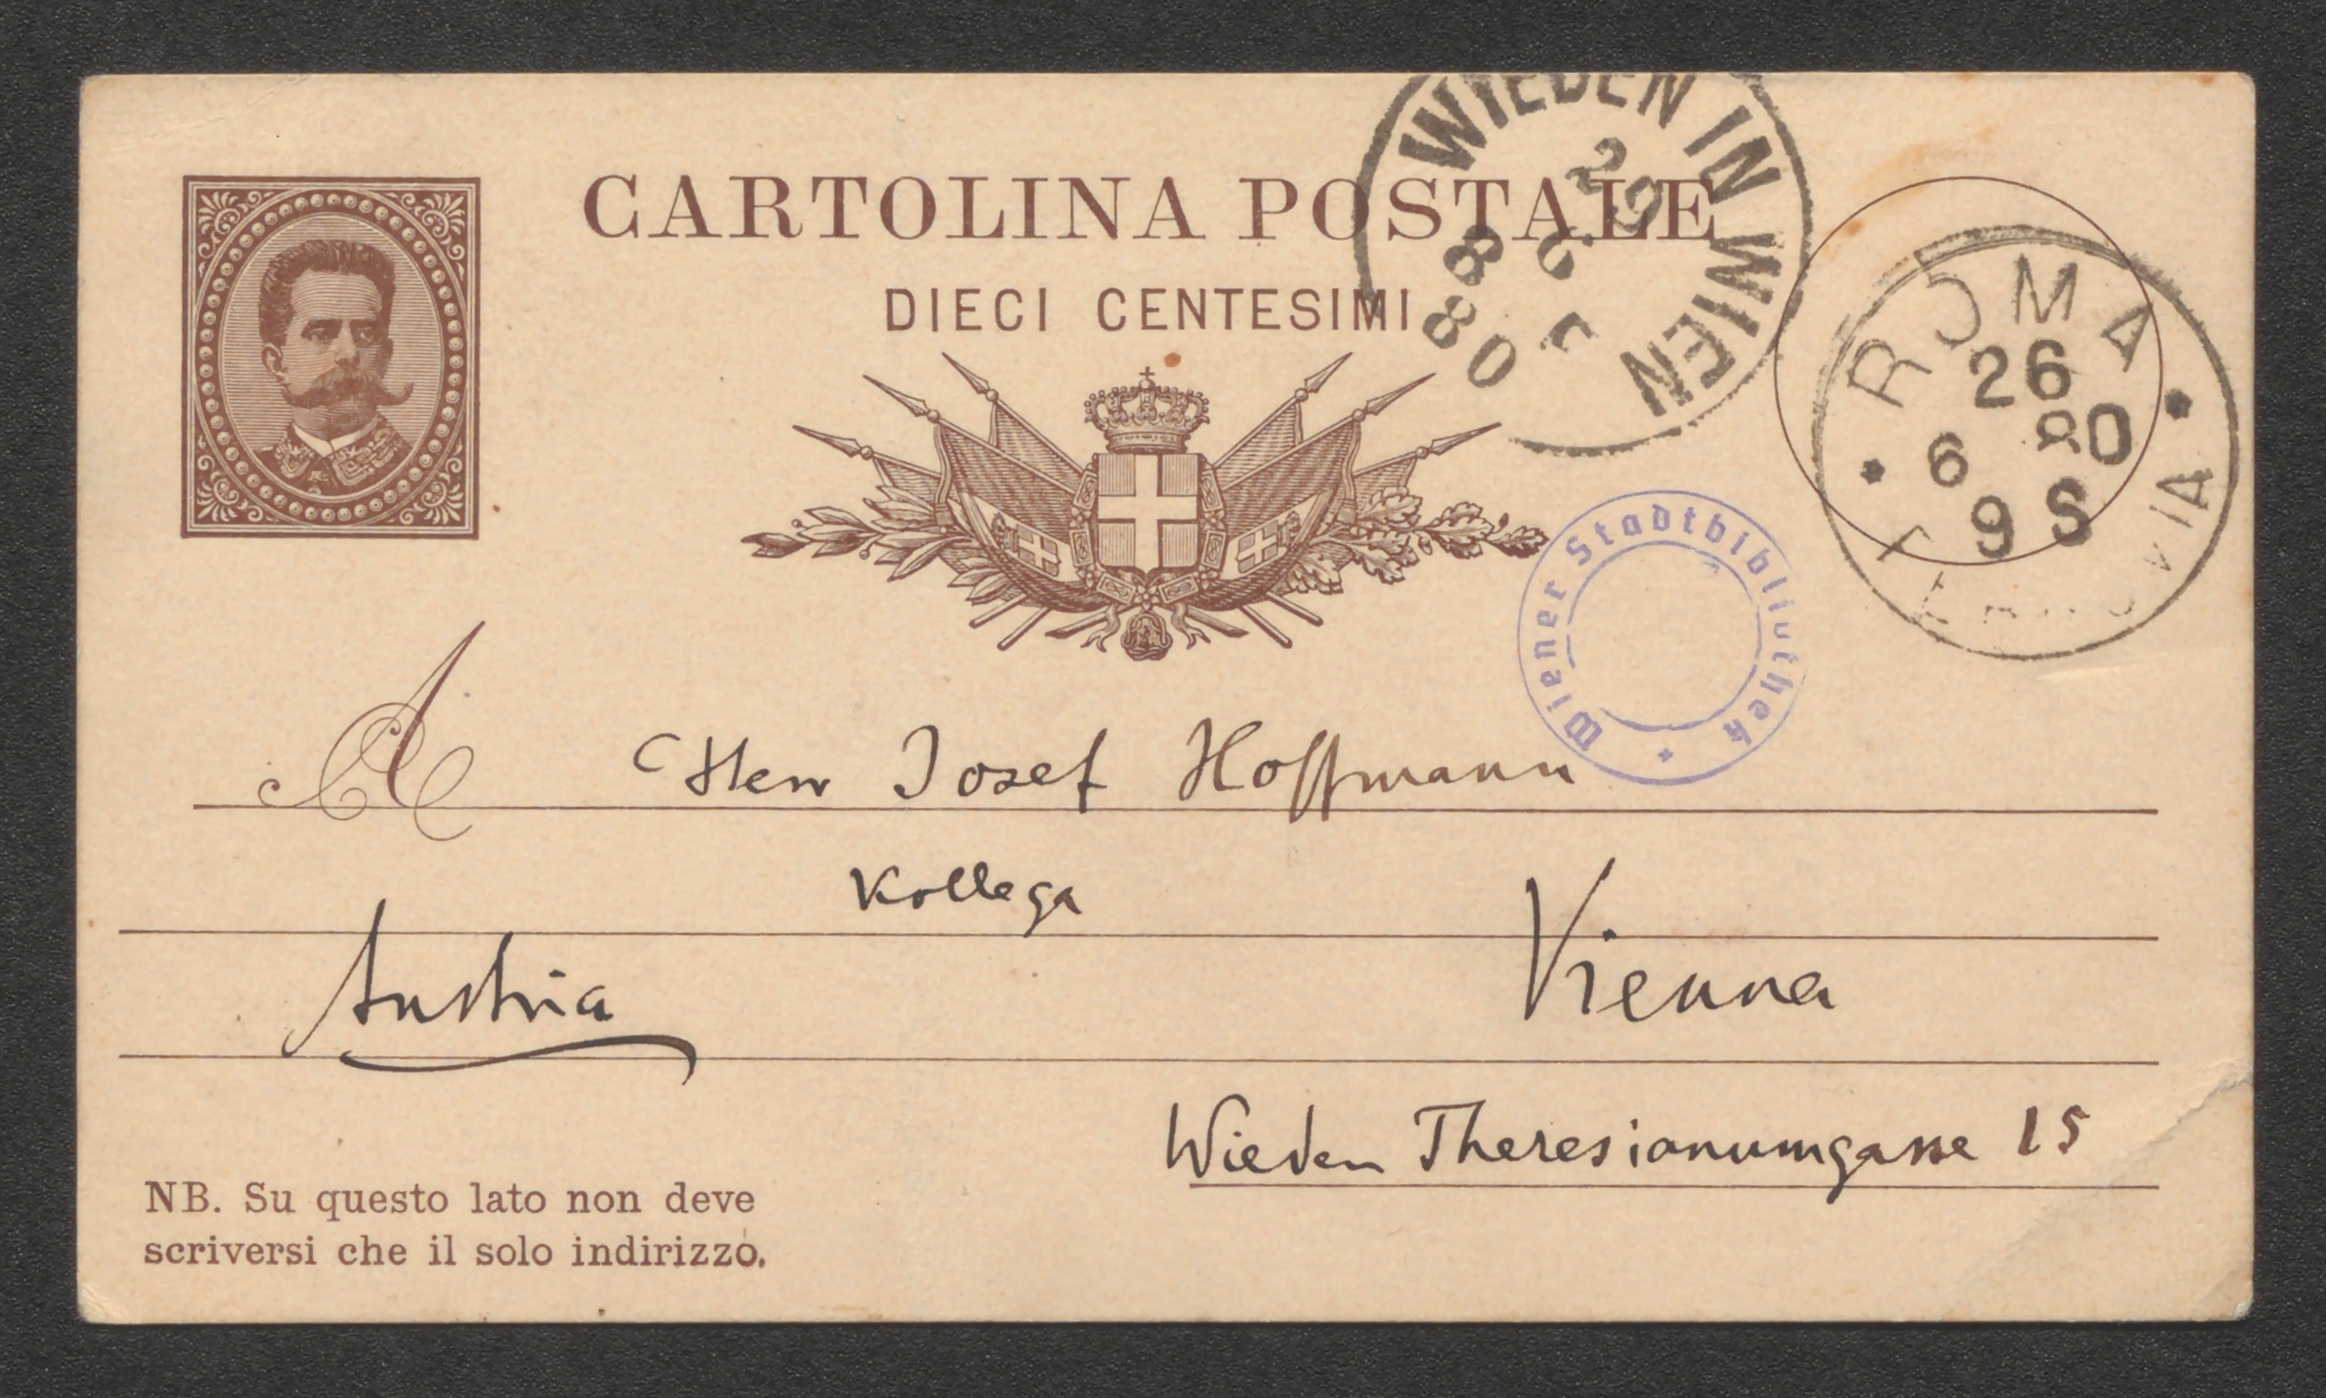 CARTOLINA POSTALE
DIECI CENTESIMI
WIEDEN IN WIEN
29
6
8
80
ROMA
26
6 80
9 S
Wiener Stadtbibliothek
A Herr Josef Hoffmann
Kollega
Austria Vienna
Wieden Theresianumgasse 15
NB. Su questo lato non deve
scriversi che il solo indirizzo.